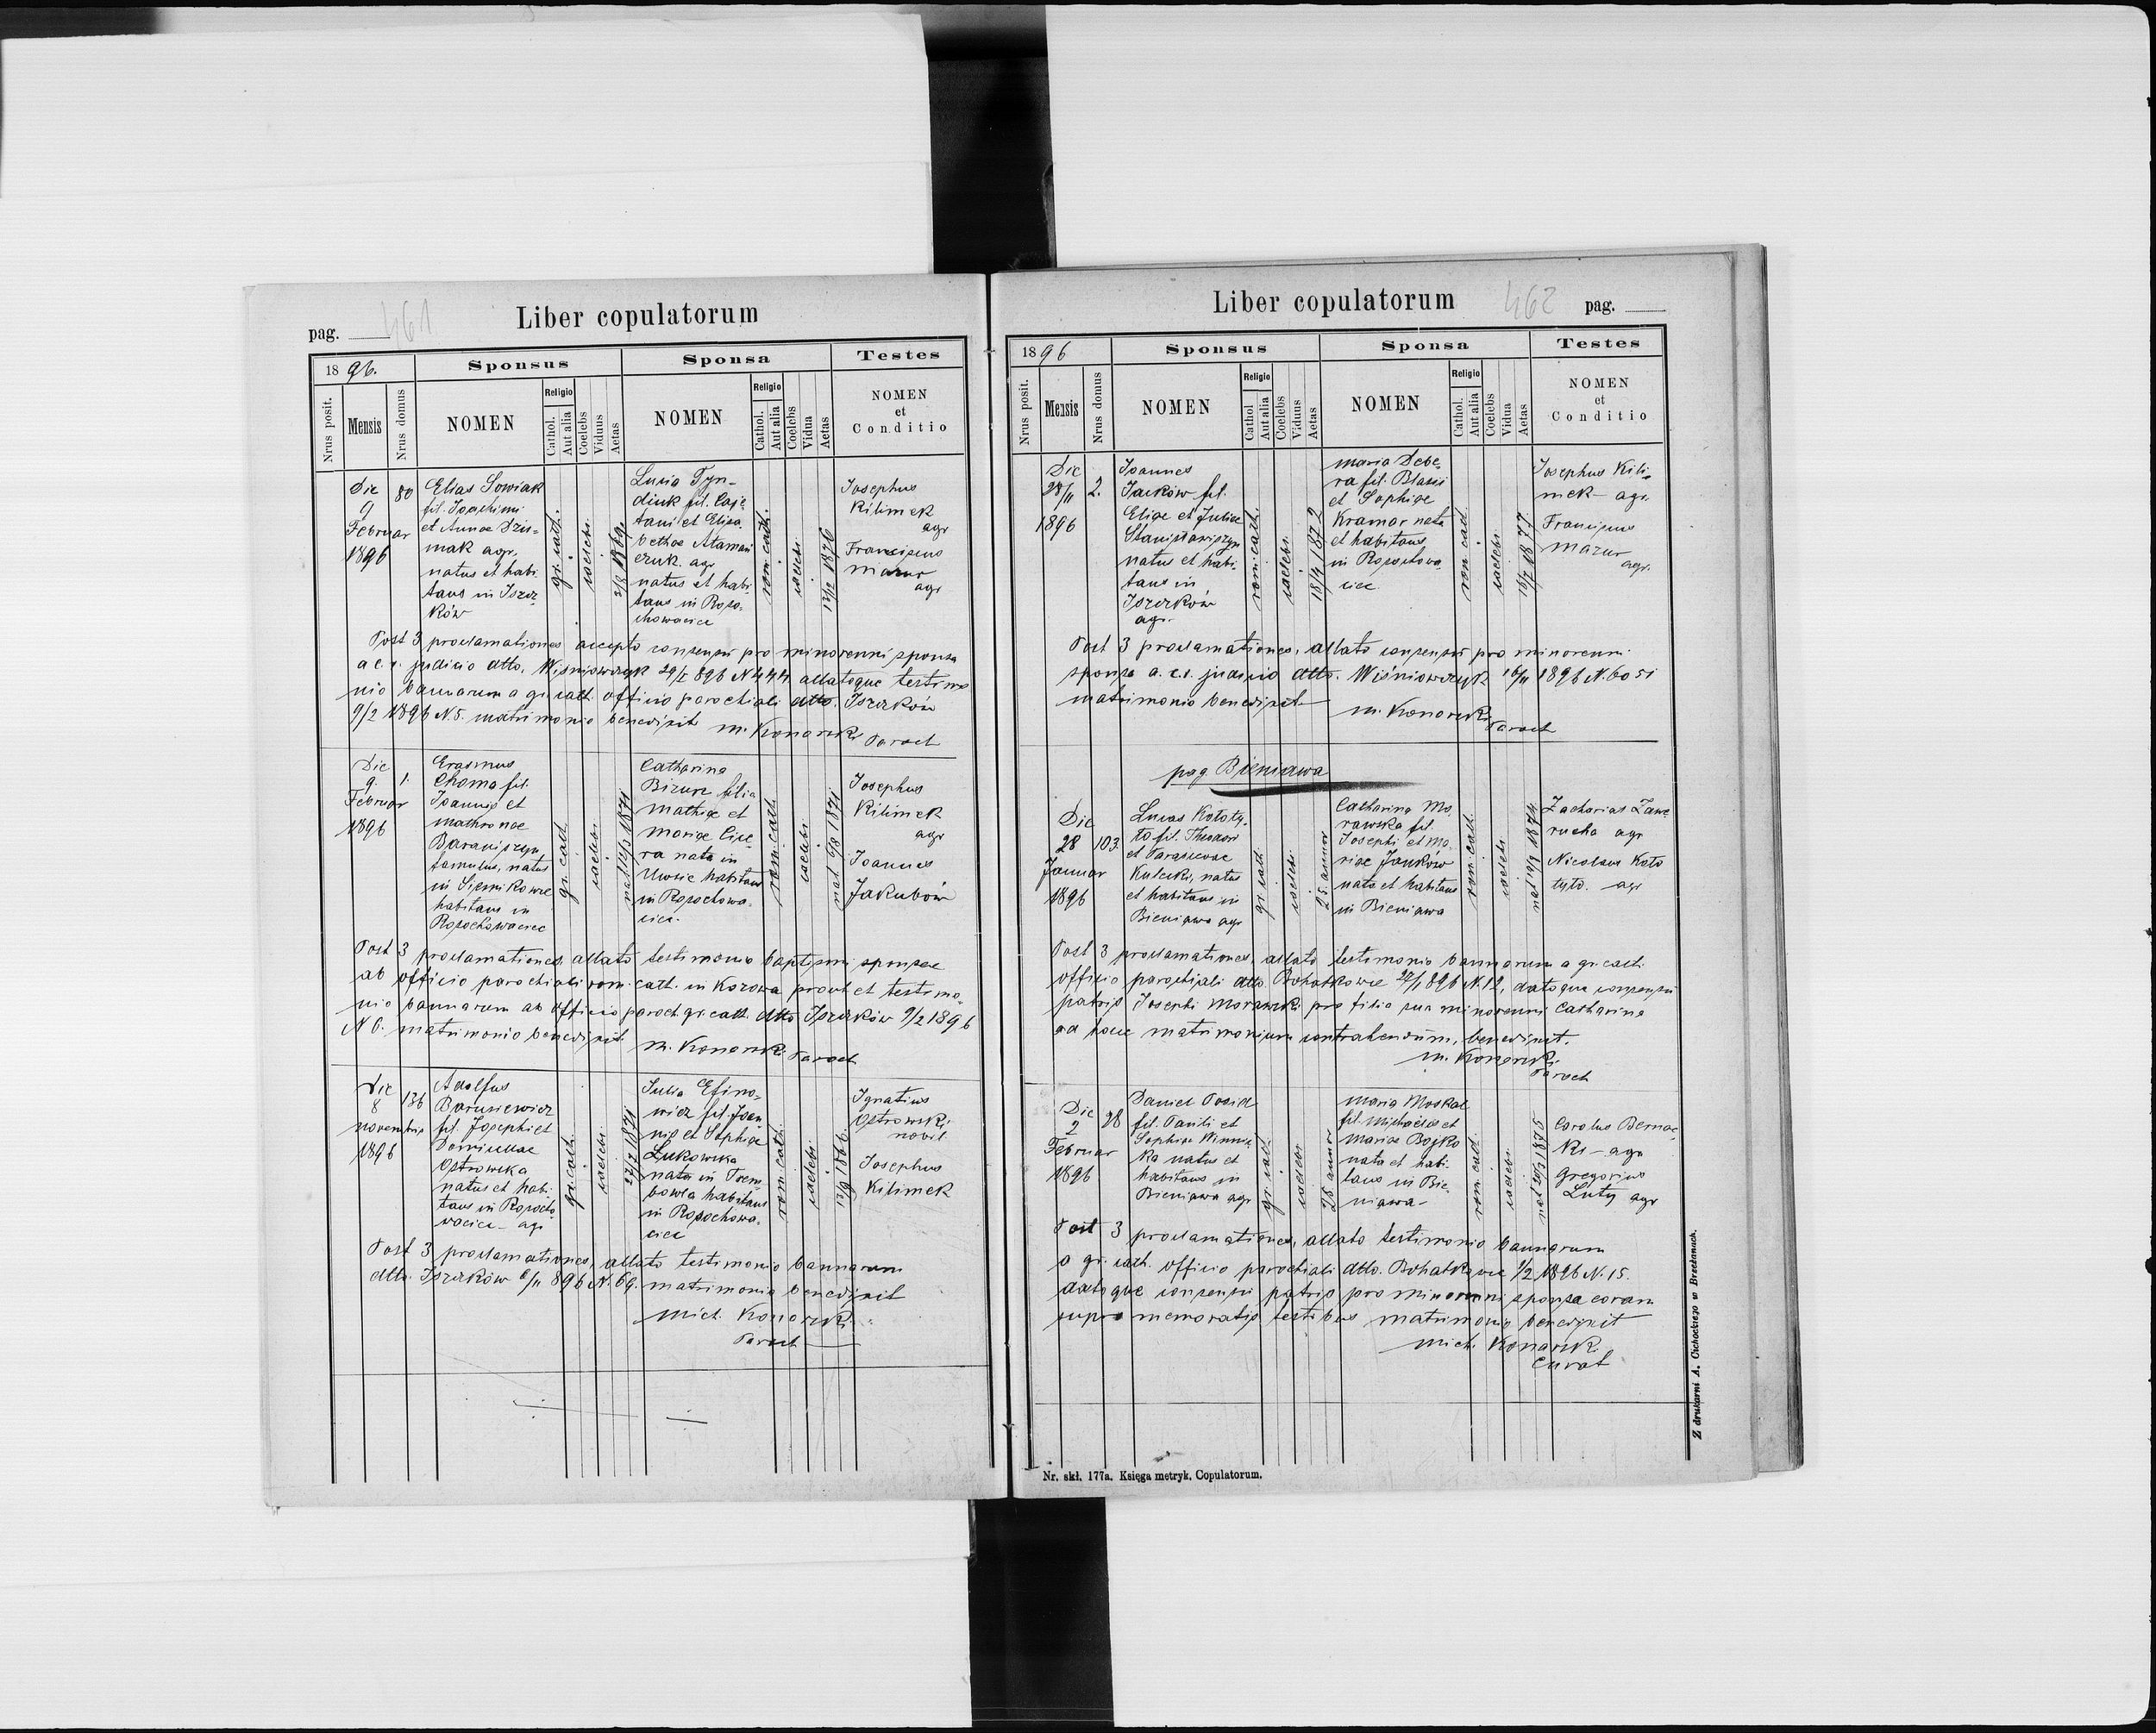 Liber copulatorum
pag. 461
1896.
Sponsus
Sponsa
Testes
Nrus posit.
Mensis
Nrus domus
NOMEN
Religio
Cathol.
Aut alia
Coelebs
Viduus
Aetas
NOMEN
Religio
Cathol.
Aut alia
Coelebs
Vidua
Aetas
NOMEN
et
Conditio
Die
9
Februar
1896
80
Elias Sowiak
fil. Joachimi
et Annae Dziu-
mak agr.
natus et habi
tans in Iszcz
ków
gr. cath.
caelebs.
Lucia Tyn-
diuk fil. Caje
tani et Elisa
bethae Ataman
czuk. agr
natus et habi
tans in Roso-
chowaciec
rom. cath.
caelebs
Josephus
Kilimek
agr
Franciscus
Mazur
agr
Post 3 proclamationes accepto consensu pro minorenni sponsa
a c. r. judicio dtto. Wiśniowczyk 29/I 896 N 444 allatoque testimo
nio bannorum a gr. cath. officio parochiali dtto. Iszczków
9/2 1896 N. 5. matrimonio benedixit
M. Konorski
Paroch
Die
9.
Februar
1896
1.
Erasmus
Choma fil.
Joannis et
Mathronae
Baraniszyn
famulus, natus
in Siemikowce
habitans in
Rosochowaciec
gr. cath.
caelebs.
Catharina
Bizun filia
Mathiae et
Mariae Cice
ra nata in
Uwsie habitans
in Rosochowa-
ciec.
rom. cath.
caelebs
Josephus
Kilimek
agr
Joannes
Jakubów
Post 3 proclamationes, allato testimonio baptismi sponsae
ab officio parochiali rom. cath. in Kozowa prout et testimo-
nio bannorum ab officio paroch. gr. cath. dtto Iszczków 9/2 1896
N 6. matrimonio benedixit
M. Konorski Paroch
Die
8
Novembris
1896
136
Adolfus
Barusiewicz
fil. Josephi et
Domicellae
Ostrowska
natus et habi
tans in Rosocho
waciec – agr
gr. cath.
caelebs.
22/7 1871
Julia Efino-
wicz fil. Joan
nis et Sophiae
Łukowska
nata in Trem
bowla habitans
in Rosochowa-
ciec
rom. cath.
caelebs
Ignatius
Ostrowski
nobil
Josephus
Kilimek
Post 3 proclamationes, allato testimonio bannorum
dtto. Iszczków 8/11 896 N. 69. matrimonio benedixit
Mich. Konorski
Paroch
Liber copulatorum
462 pag.
1896
Sponsus
Sponsa
Testes
Nrus posit.
Mensis
Nrus domus
NOMEN
Religio
Cathol
Aut alia
Coelebs
Viduus
Aetas
NOMEN
Religio
Cathol.
Aut alia
Coelebs
Vidua
Aetas
NOMEN
et
Conditio
Die
28/11
1896
2.
Joannes
Jaćków fil.
Eliae et Juliae
Stanisławiszyn
natus et habi-
tans in
Iszczków
agr.
rom. cath.
caelebs.
18/4 1872
Maria Debe
ra fil. Blasii
et Sophiae
Kramar nata
et habitans
in Rosochowa
ciec
rom. cath
caelebs
18/7 1877
Josephus Kili
mek – agr.
Franciscus
Mazur
agr.
Post 3 proclamationes, allato consensu pro minorenni
sponsa a. c. r. judicio dtto. Wiśniowczyk 16/11 1896 N. 6051
matrimonio benedixit
M. Konorski
Paroch
pag. Bieniawa
Die
28
Januar
1896
103.
Lucas Kołoty-
ło fil. Theodori
et Parascevae
Kulczki, natus
et habitans in
Bieniawa agr
gr. cath.
caelebs.
25 annor
Catharina Mo
rawska fil.
Josephi et Ma
riae Jańków
nata et habitans
in Bieniawa
rom. cath.
caelebs
Zacharias Zawe
rucha agr
Nicolaus Koło
tyło. agr
Post 3 proclamationes, allato testimonio bannorum a gr. cath
officio parochiali dtto. Bohatkowce 27/1 896 N. 12, datoque consensu
patris Josephi Morawski pro filia sua minorenni Catharina
ad hocce matrimonium contrahendum, benedixit.
M. Konorski
Paroch
Die
2
Februar
1896
28
fil. Pauli et
Sophiae Winnic
ka natus et
habitans in
Bieniawa agr
gr. cath
caelebs
28 annor
Maria Moskal
fil. Michaelis et
Mariae Bojko
nata et habi-
tans in Bie-
niawa
rom. cath.
caelebs
Carolus Bernac
ki – agr
Gregorius
Luty agr
Post 3 proclamationes, allato testimonio bannorum
a gr. cath. officio parochiali dtto. Bohatkowce 1/2 1896 N. 15.
datoque consensu patris pro minorenni sponsa coram
supra memoratis testibus matrimonio benedixit
Mich. Konorski
Curat
Nr. skł. 177a. Księga metryk, Copulatorum.
Z drukarni A. Cichockiego w Brzeżanach.